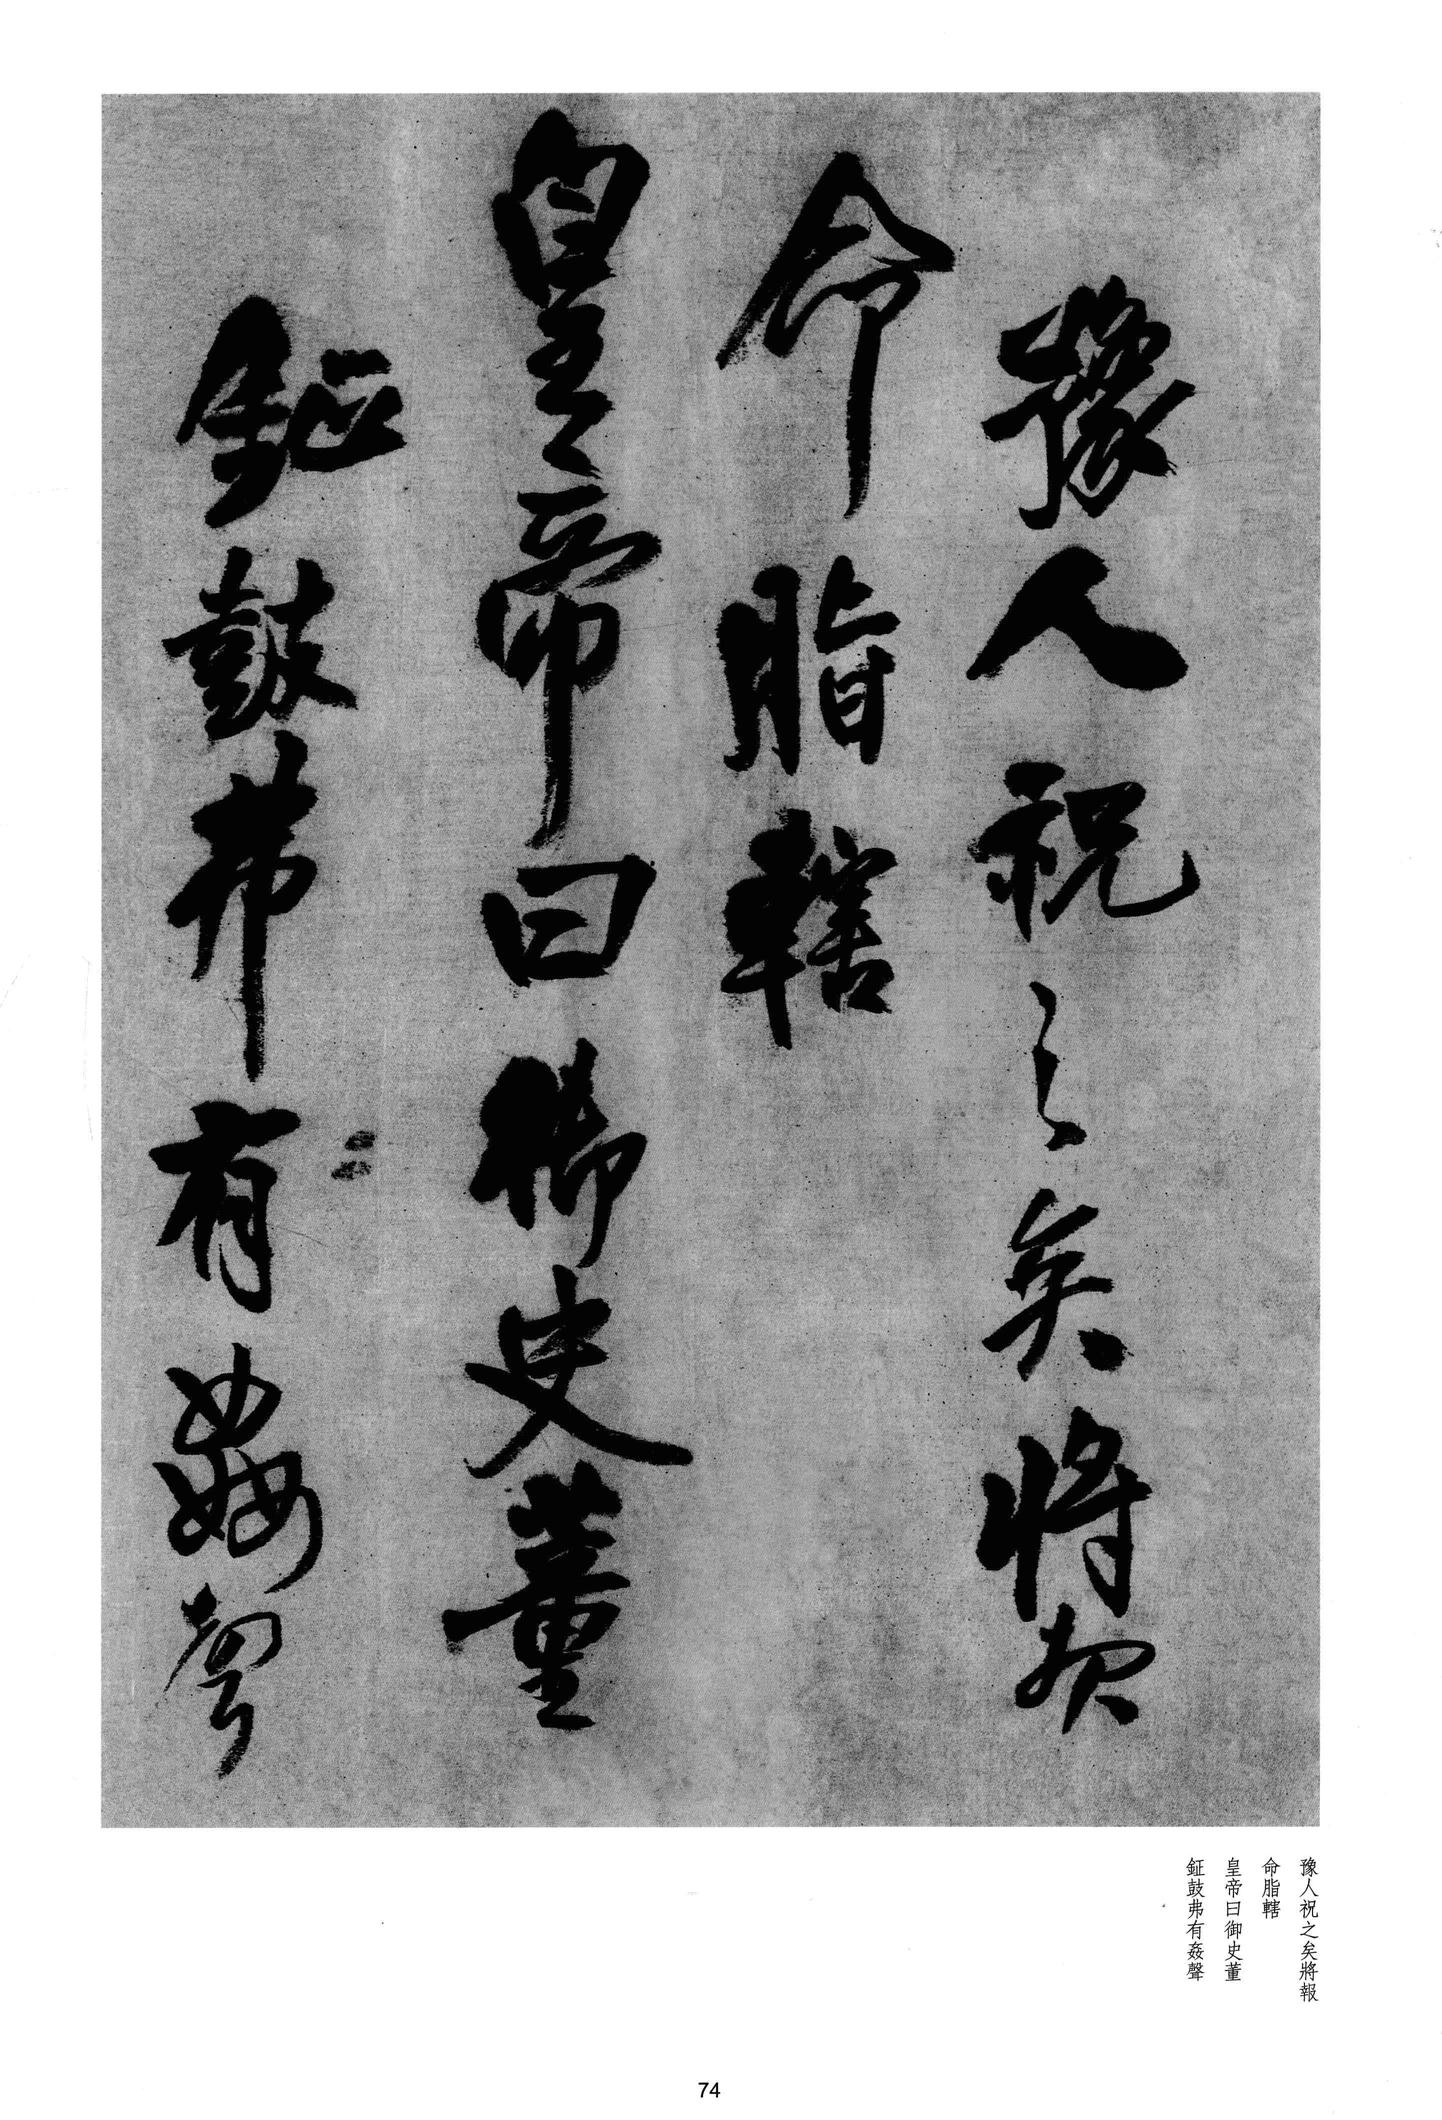 豫人祝之矣將報
命脂轄
皇帝曰御史董
鉦鼓弗有姦聲
豫人祝之矣將報
命脂轄
皇帝曰御史董
鉦鼓弗有姦聲
74